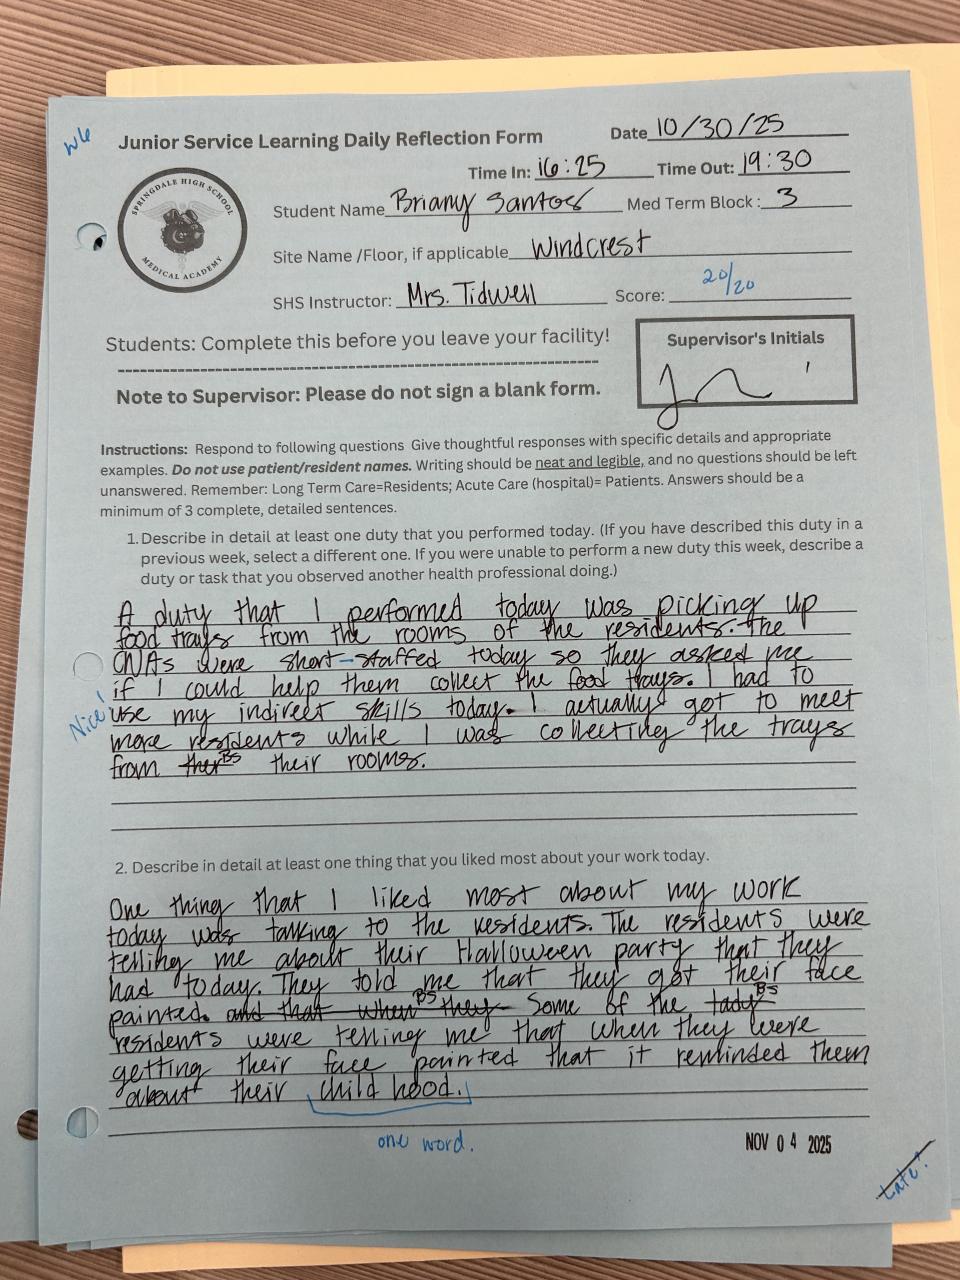 W6
Junior Service Learning Daily Reflection Form
Date 10/30/25
Time In: 16:25 Time Out: 19:30
SPRINGDALE HIGH SCHOOL
MEDICAL ACADEMY
Student Name Briany Santos Med Term Block: 3
Site Name /Floor, if applicable Windcrest
SHS Instructor: Mrs. Tidwell Score: 20/20
Students: Complete this before you leave your facility!
Supervisor's Initials
Note to Supervisor: Please do not sign a blank form.
Instructions: Respond to following questions Give thoughtful responses with specific details and appropriate
examples. Do not use patient/resident names. Writing should be neat and legible, and no questions should be left
unanswered. Remember: Long Term Care=Residents; Acute Care (hospital)= Patients. Answers should be a
minimum of 3 complete, detailed sentences.
1. Describe in detail at least one duty that you performed today. (If you have described this duty in a
previous week, select a different one. If you were unable to perform a new duty this week, describe a
duty or task that you observed another health professional doing.)
A duty that I performed today was picking up
food trays from the rooms of the residents. The
CNAs were short-staffed today so they asked me
if I could help them collect the food trays. I had to
Nice! use my indirect skills today. I actually got to meet
more residents while I was collecting the trays
from ther BS their rooms.
2. Describe in detail at least one thing that you liked most about your work today.
One thing that I liked most about my work
today was talking to the residents. The residents were
telling me about their Halloween party that they
had today. They told me that they got their face
painted. and that when BS they Some of the tady BS
residents were telling me that when they were
getting their face painted that it reminded them
about their child hood.
one word.
NOV 04 2025
Late!